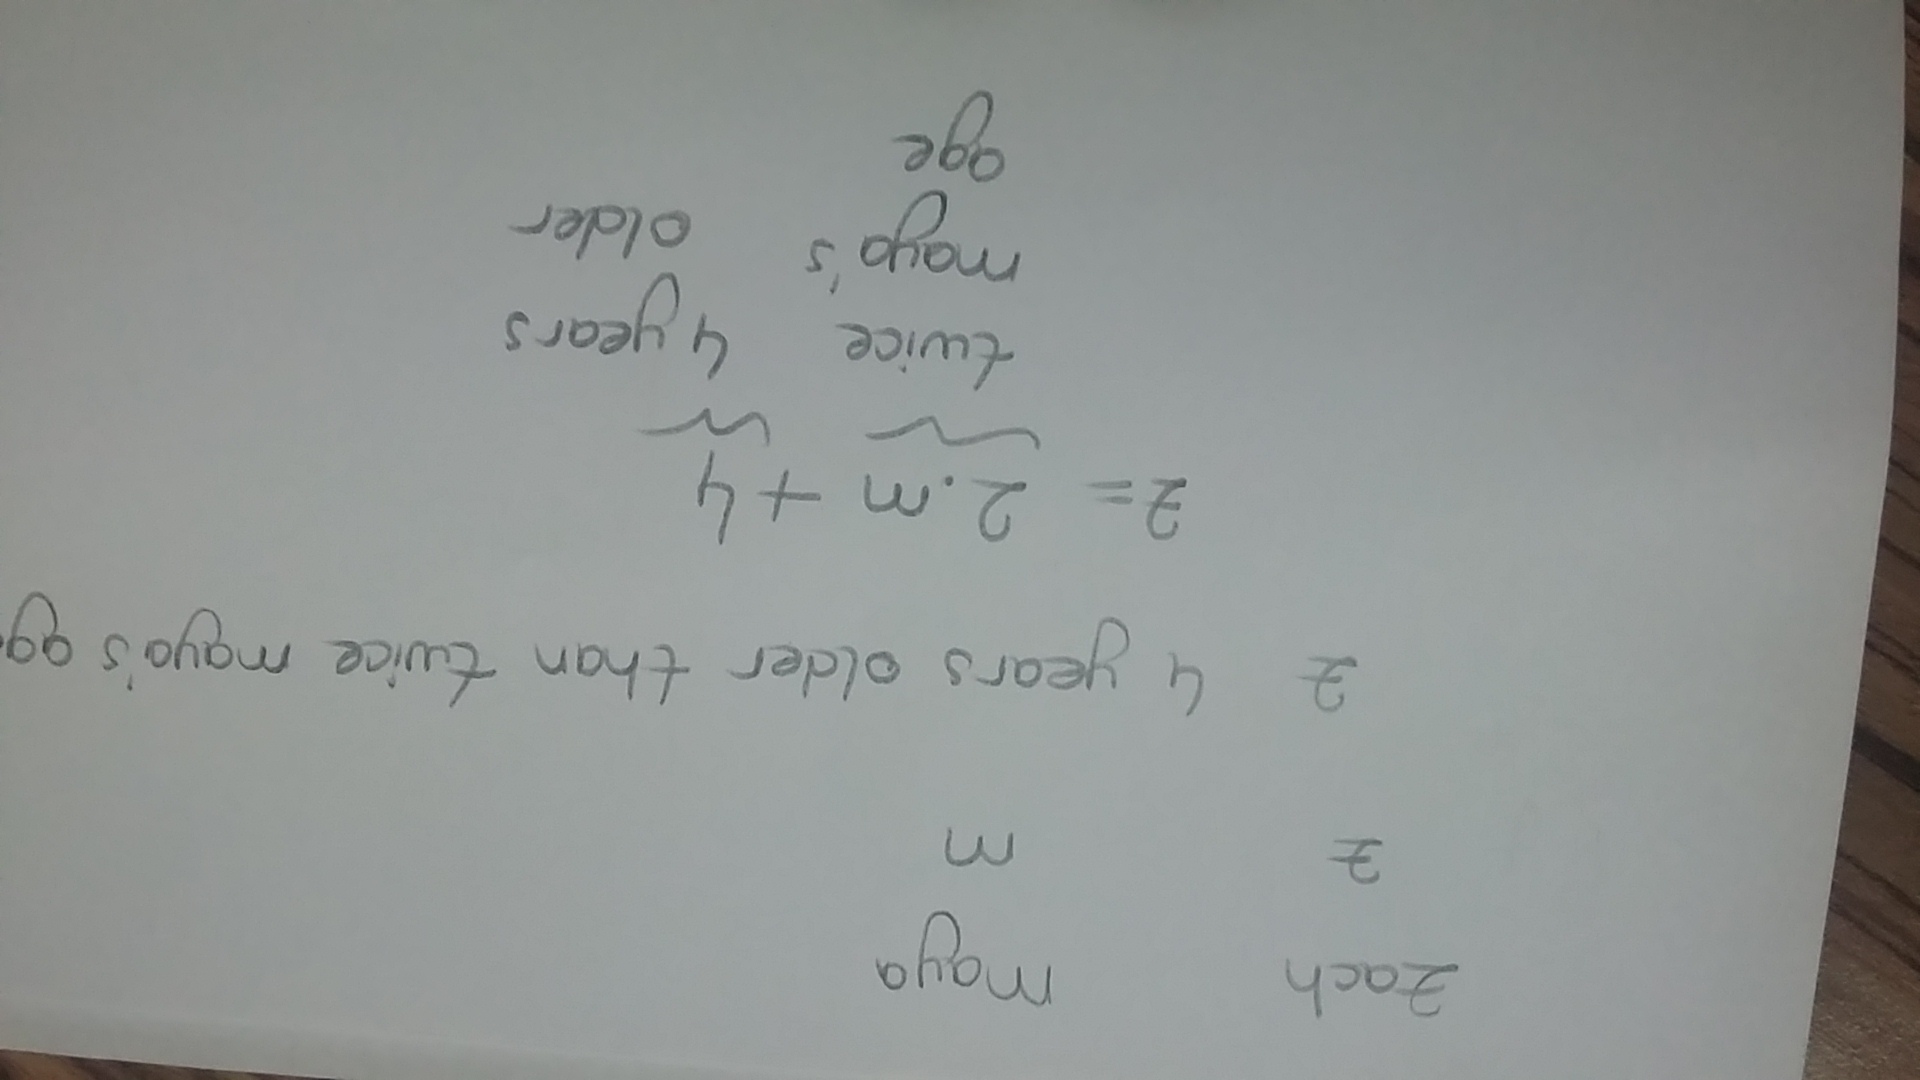 Zach maya
z m
z 4 years older than twice maya's ag
z = 2.m + 4
twice 4 years
maya's older
age